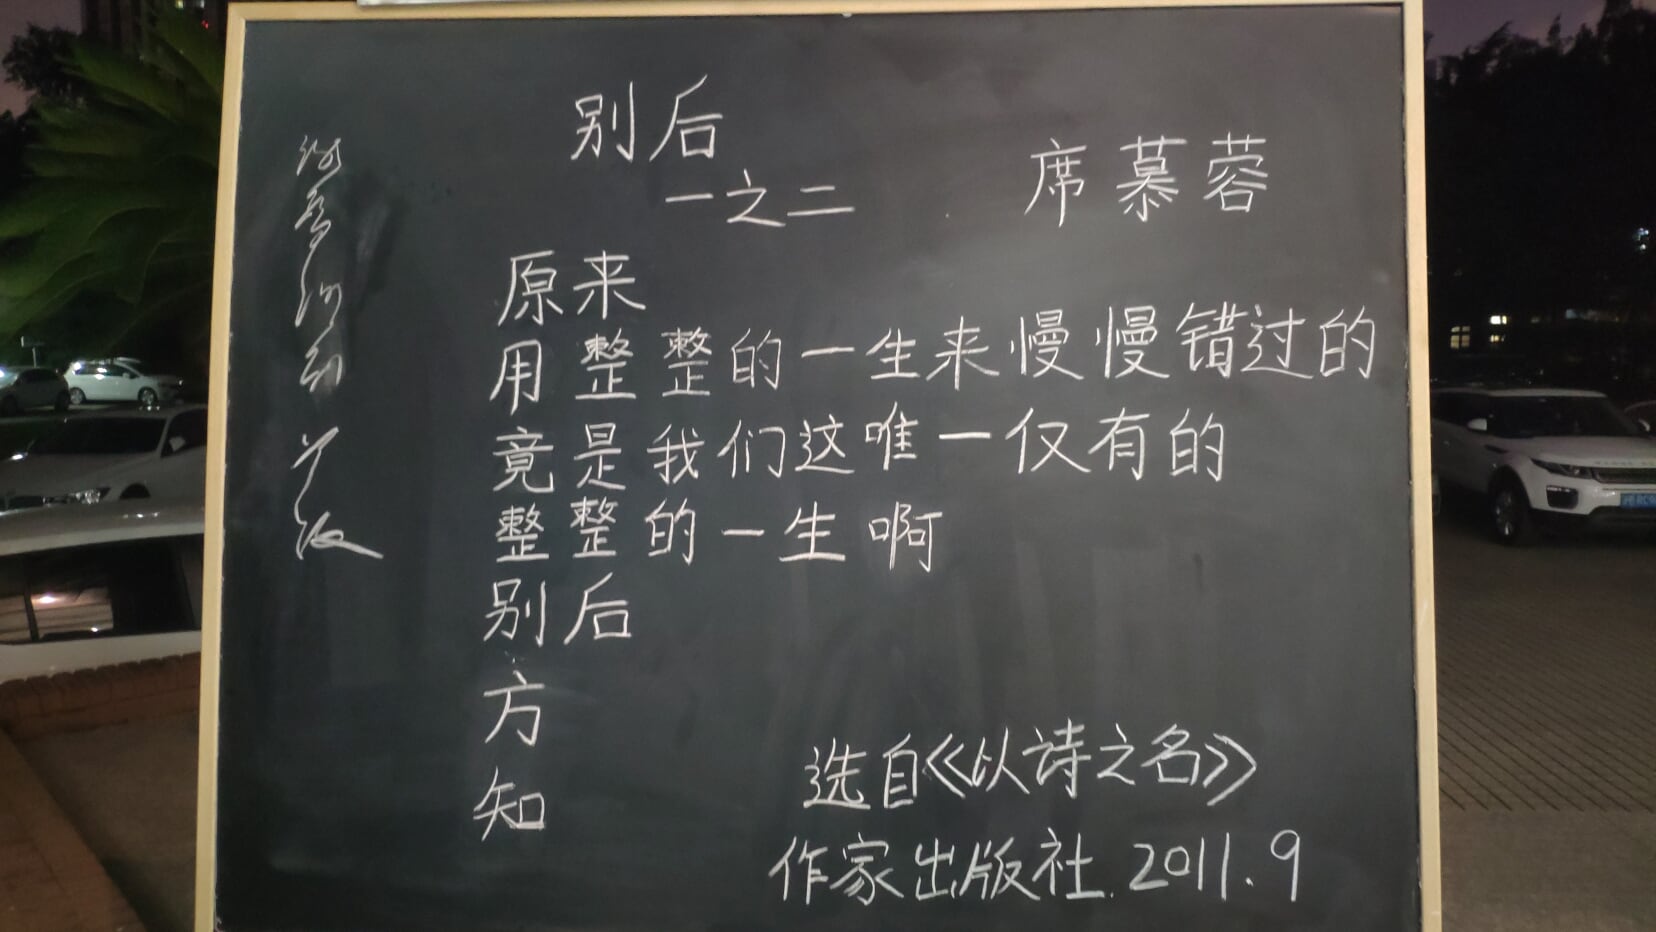 别后
一之二
席慕蓉
原来
用整整的一生来慢慢错过的
竟是我们这唯一仅有的
整整的一生啊
别后
方
知
选自《以诗之名》
作家出版社.2011.9